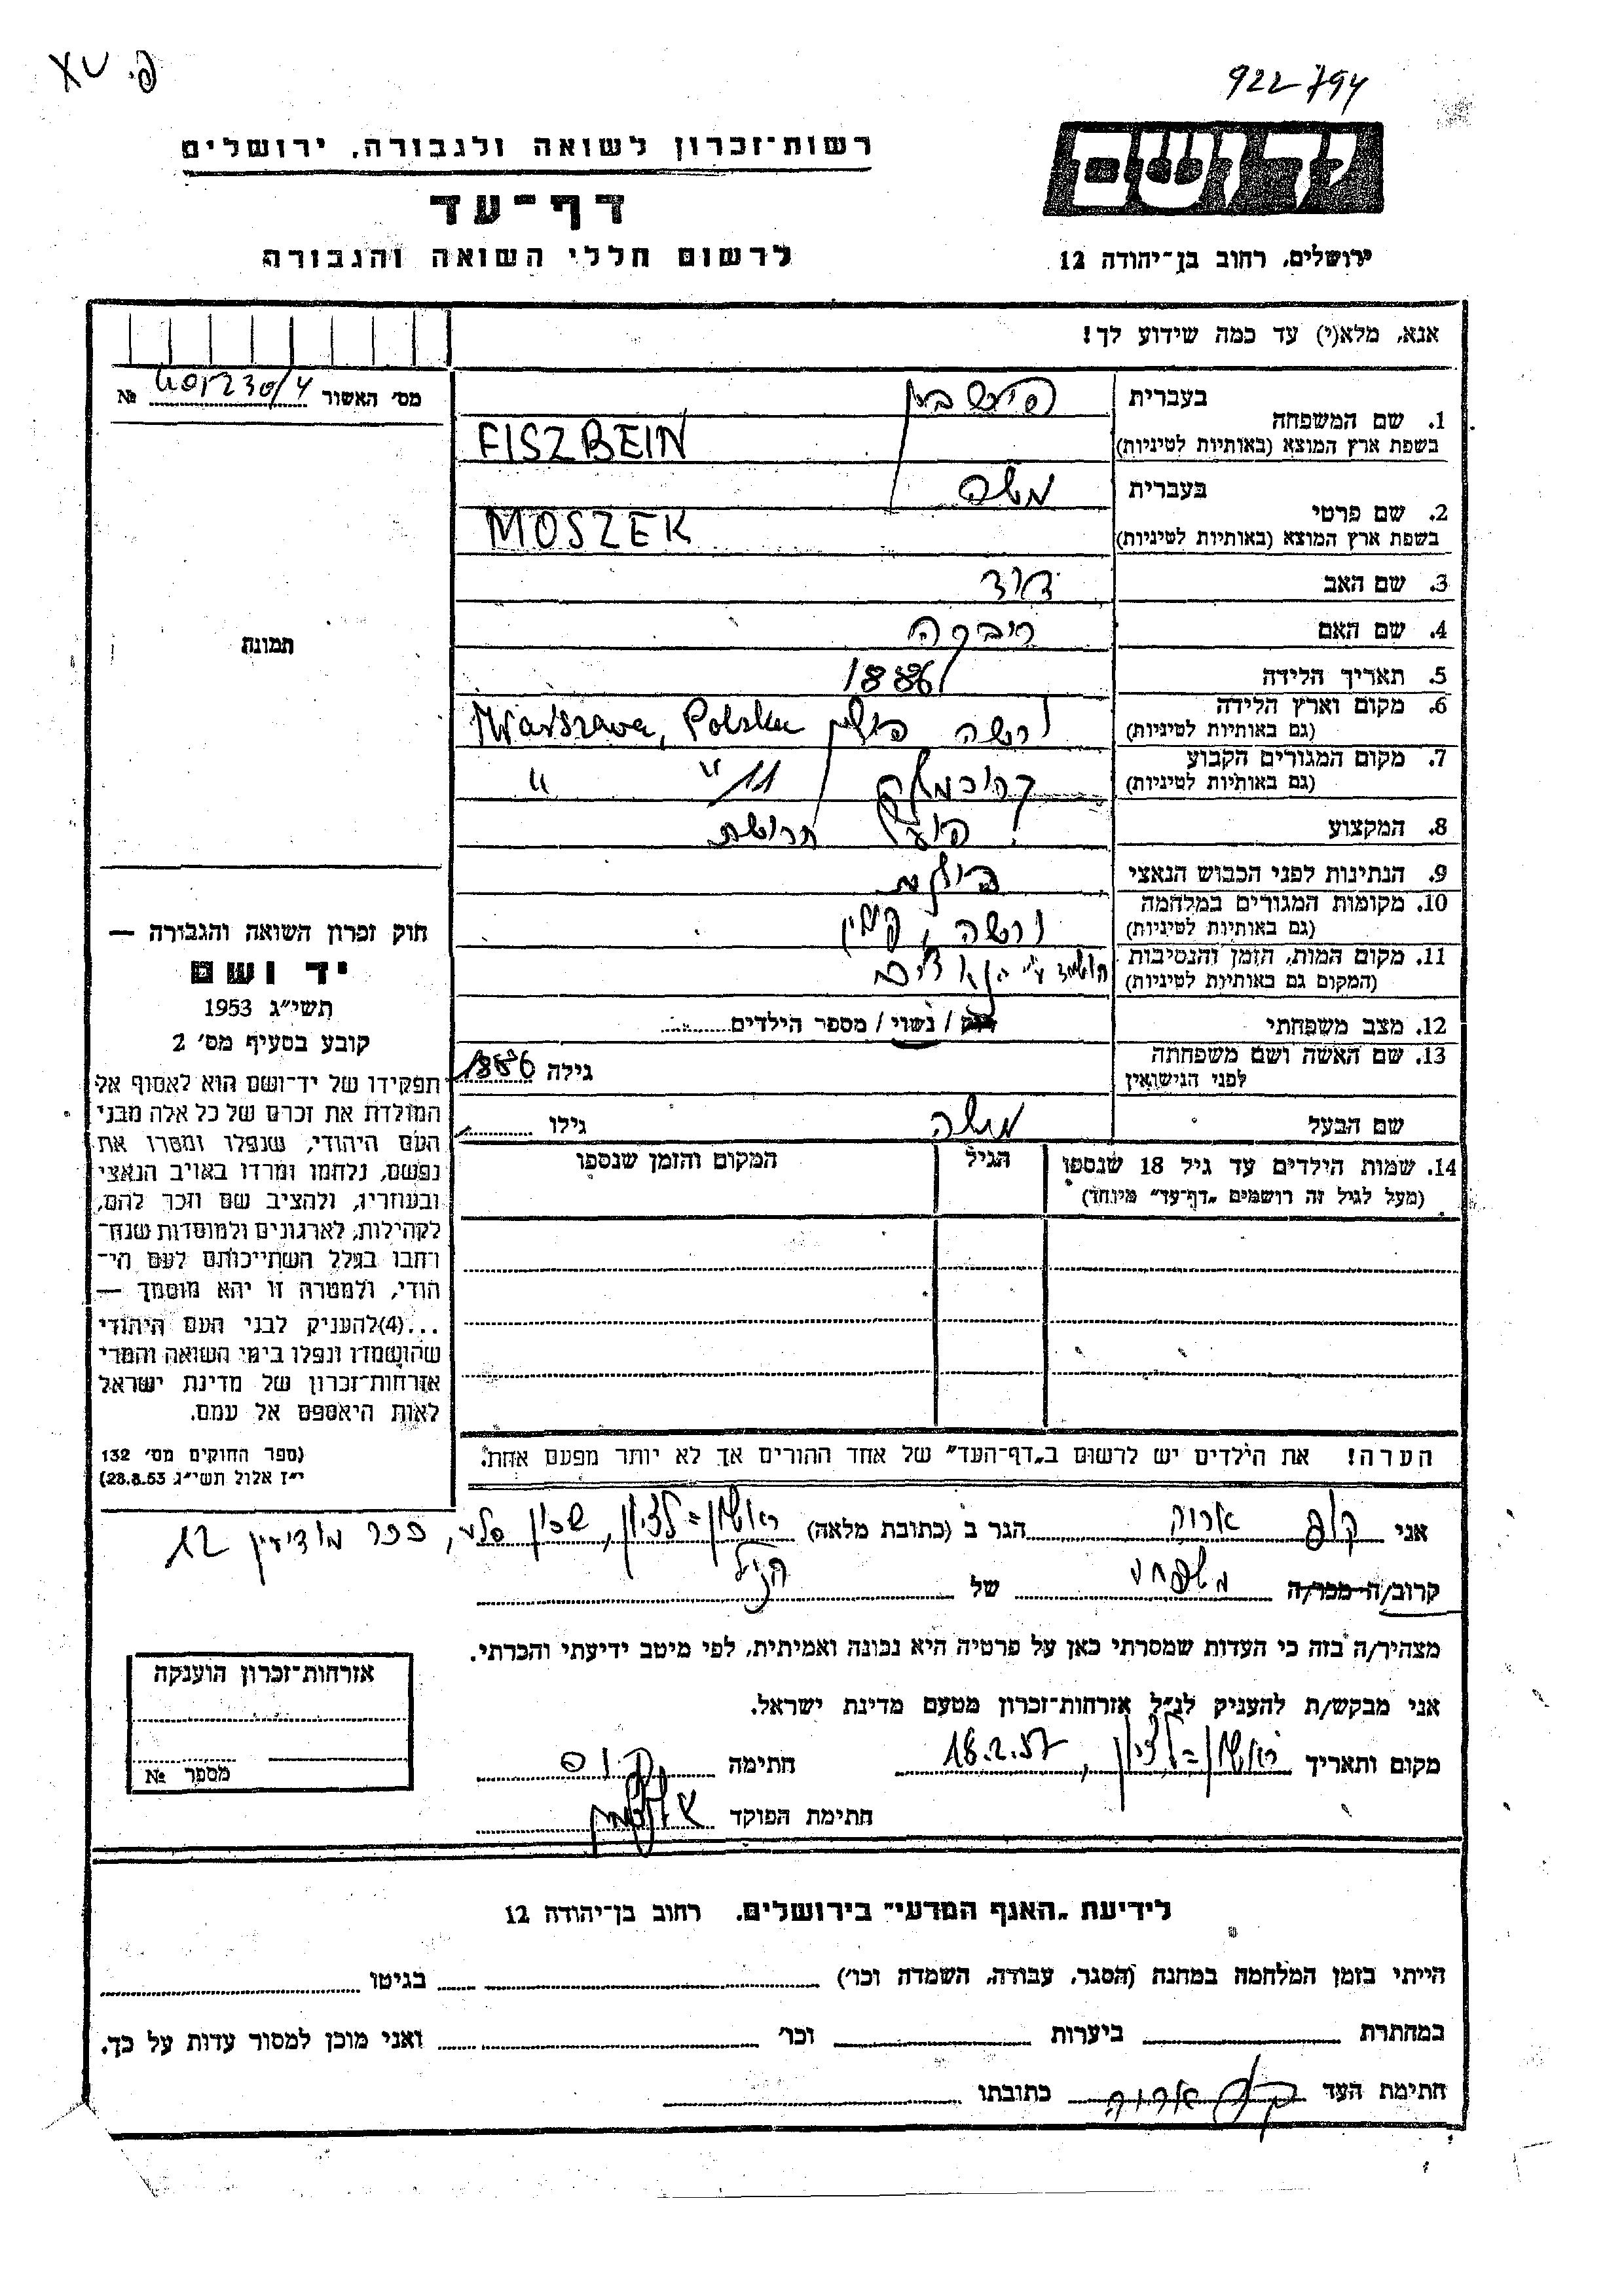 922794
רשות־זכרון לשואה ולגבורה, ירושלים
יד ושם
דף־עד
לרשום חללי השואה והגבורה
ירושלים, רחוב בן־יהודה 12
אנא, מלא(י) עד כמה שידוע לך!
מס׳ האשור №
1. שם המשפחה בעברית פישביין
בשפת ארץ המוצא (באותיות לטיניות) FISZBEIN
2. שם פרטי בעברית משה
בשפת ארץ המוצא (באותיות לטיניות) MOSZEK
3. שם האב דוד
4. שם האם ריבקה
5. תאריך הלידה 1886
6. מקום וארץ הלידה (גם באותיות לטיניות) ורשה פולין Warszawa, Polska
7. מקום המגורים הקבוע (גם באותיות לטיניות) קרוכמלנה 11 " "
8. המקצוע פועל חרושת
9. הנתינות לפני הכבוש הנאצי פולנית
10. מקומות המגורים במלחמה (גם באותיות לטיניות) ורשה, פולין
11. מקום המות, הזמן והנסיבות (המקום גם באותיות לטיניות) הושמד ע"י הנאצים
12. מצב משפחתי רווק / נשוי / מספר הילדים
13. שם האשה ושם משפחתה לפני הנישואין גילה 1886
שם הבעל משה גילו
14. שמות הילדים עד גיל 18 שנספו הגיל המקום והזמן שנספו
(מעל לגיל זה רושמים „דף־עד" מיוחד)
הערה! את הילדים יש לרשום ב„דף־העד" של אחד ההורים אך לא יותר מפעם אחת.
תמונה
חוק זכרון השואה והגבורה —
יד ושם
תשי״ג 1953
קובע בסעיף מס׳ 2
תפקידו של יד־ושם הוא לאסוף אל
המולדת את זכרם של כל אלה מבני
העם היהודי, שנפלו ומסרו את
נפשם, נלחמו ומרדו באויב הנאצי
ובעוזריו, ולהציב שם וזכר להם,
לקהילות, לארגונים ולמוסדות שנח־
רחבו בגלל השתייכותם לעם הי־
הודי, ולמטרה זו יהא מוסמך —
...(4)להעניק לבני העם היהודי
שהושמדו ונפלו בימי השואה והמרי
אזרחות־זכרון של מדינת ישראל
לאות היאספם אל עמם.
(ספר החוקים מס׳ 132
י״ז אלול תשי״ג 28.8.53)
אני קופ ארוה הגר ב (כתובת מלאה) ראשון=לציון, שכון סלע, ככר מודיעין 12
קרוב/ה מכר/ה משפחה של הנ"ל
מצהיר/ה בזה כי העדות שמסרתי כאן על פרטיה היא נכונה ואמיתית, לפי מיטב ידיעתי והכרתי.
אני מבקש/ת להעניק לנ״ל אזרחות־זכרון מטעם מדינת ישראל.
מקום ותאריך ראשון=לציון, 18.2.57 חתימה קופ
חתימת הפוקד
אזרחות־זכרון הוענקה
מספר №
לידיעת „האגף המדעי" בירושלים, רחוב בן־יהודה 12
הייתי בזמן המלחמה במחנה (הסגר, עבודה, השמדה וכו׳) בגיטו
במחתרת ביערות וכו׳ ואני מוכן למסור עדות על כך.
חתימת העד כתובתו